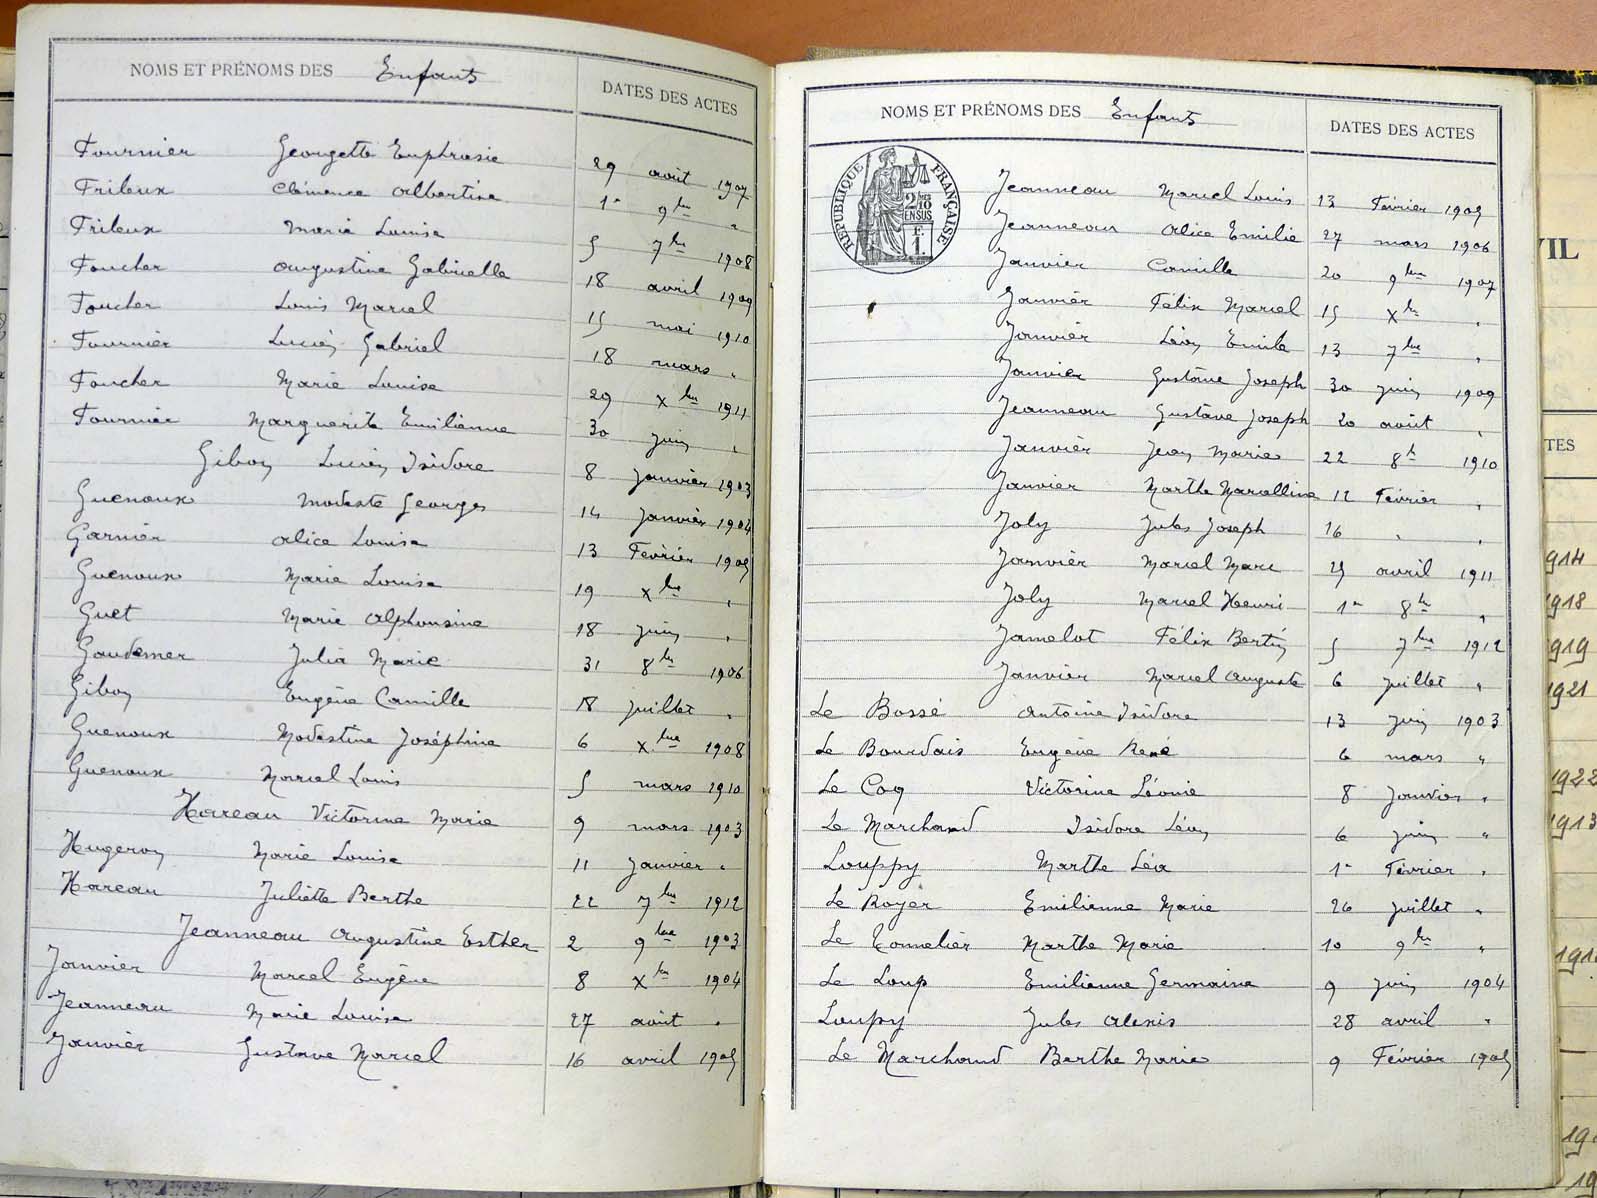 NOMS ET PRÉNOMS DES Enfants DATES DES ACTES
Fournier Georgette Euphrasie 29 août 1907
Frileux Clémence Albertine 1er 9bre "
Frileux Marie Louise 5 7bre 1908
Foucher Augustine Gabrielle 18 avril 1909
Foucher Louis Marcel 15 mai 1910
Fournier Lucien Gabriel 18 mars "
Foucher Marie Louise 29 Xbre 1911
Fournier Marguerite Emilienne 30 juin "
Gibon Lucien Isidore 8 Janvier 1903
Guenoux Modeste Georges 14 Janvier 1904
Garnier Alice Louise 13 Février 1905
Guenoux Marie Louise 19 Xbre "
Guet Marie Alphonsine 18 juin "
Gaudemer Julia Marie 31 8bre 1906
Gibon Eugène Camille 18 juillet "
Guenoux Modestine Joséphine 6 Xbre 1908
Guenoux Marcel Louis 5 mars 1910
Hareau Victorine Marie 9 mars 1903
Hugeron Marie Louise 11 Janvier "
Hareau Juliette Berthe 22 7bre 1912
Jeanneau Augustine Esther 2 9bre 1903
Janvier Marcel Eugène 8 Xbre 1904
Jeanneau Marie Louise 27 août "
Janvier Gustave Marcel 16 avril 1905
NOMS ET PRÉNOMS DES Enfants DATES DES ACTES
RÉPUBLIQUE FRANÇAISE
2/10
EN SUS
F.
1.
Jeanneau Marcel Louis 13 Février 1905
Jeanneau Alice Emilie 27 mars 1906
Janvier Camille 20 9bre 1907
Janvier Félix Marcel 15 Xbre "
Janvier Léon Emile 13 7bre "
Janvier Gustave Joseph 30 juin 1909
Jeanneau Gustave Joseph 20 août "
Janvier Jean Marie 22 8bre 1910
Janvier Marthe Marcelline 12 Février "
Joly Jules Joseph 16 " "
Janvier Marcel Marc 25 avril 1911
Joly Marcel Henri 1er 8bre "
Jamelot Félix Bertin 5 7bre 1912
Janvier Marcel Auguste 6 juillet "
Le Bossé Antoine Isidore 13 juin 1903
Le Bourdais Eugène René 6 mars "
Le Coq Victorine Léonie 8 Janvier "
Le Marchand Isidore Léon 6 juin "
Louppy Marthe Léa 1er Février "
Le Royer Emilienne Marie 26 juillet "
Le Tonnelier Marthe Marie 10 9bre "
Le Loup Emilienne Germaine 9 juin 1904
Loupy Jules Alexis 28 avril "
Le Marchand Berthe Marie 9 Février 1905
VIL
TES
1914
1918
1919
1921
1922
1913